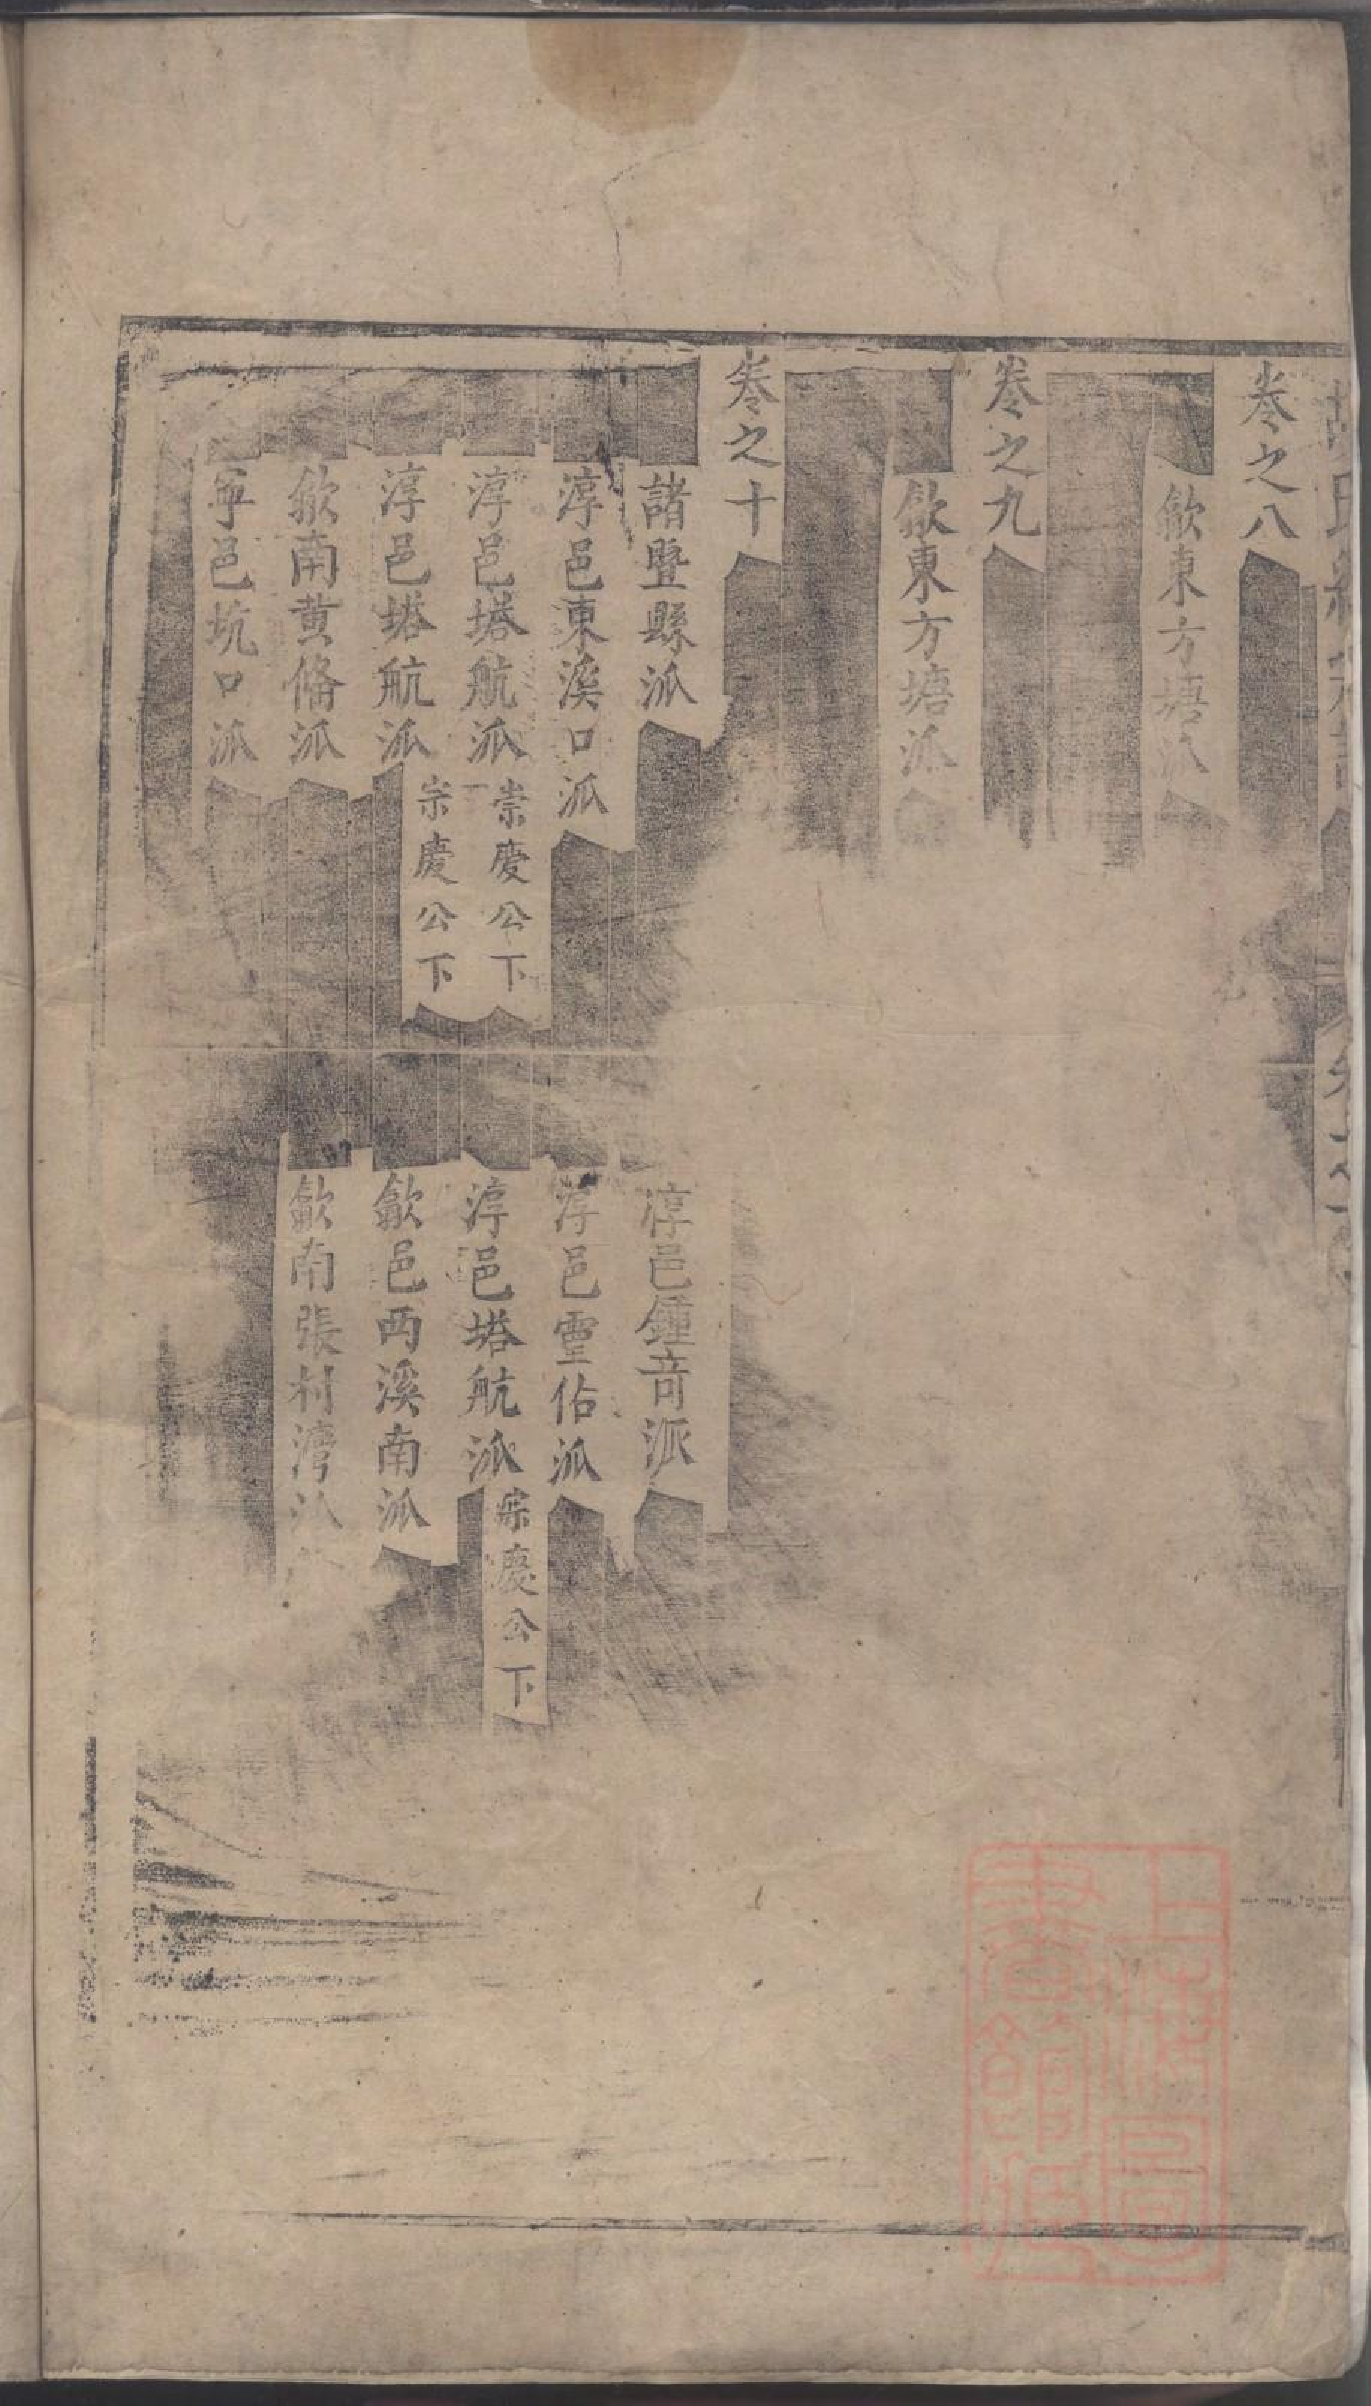 卷之八
歙東方塘派
卷之九
歙東方塘派
卷之十
諸曁縣派
淳邑鍾奇派
淳邑東溪口派
淳邑靈佔派
淳邑塔航派 崇慶公下
淳邑塔航派 宗慶公下
淳邑塔航派 宗慶公下
歙邑西溪南派
歙南黄脩派
歙南張村灣派
寧邑坑口派
上海圖書館藏